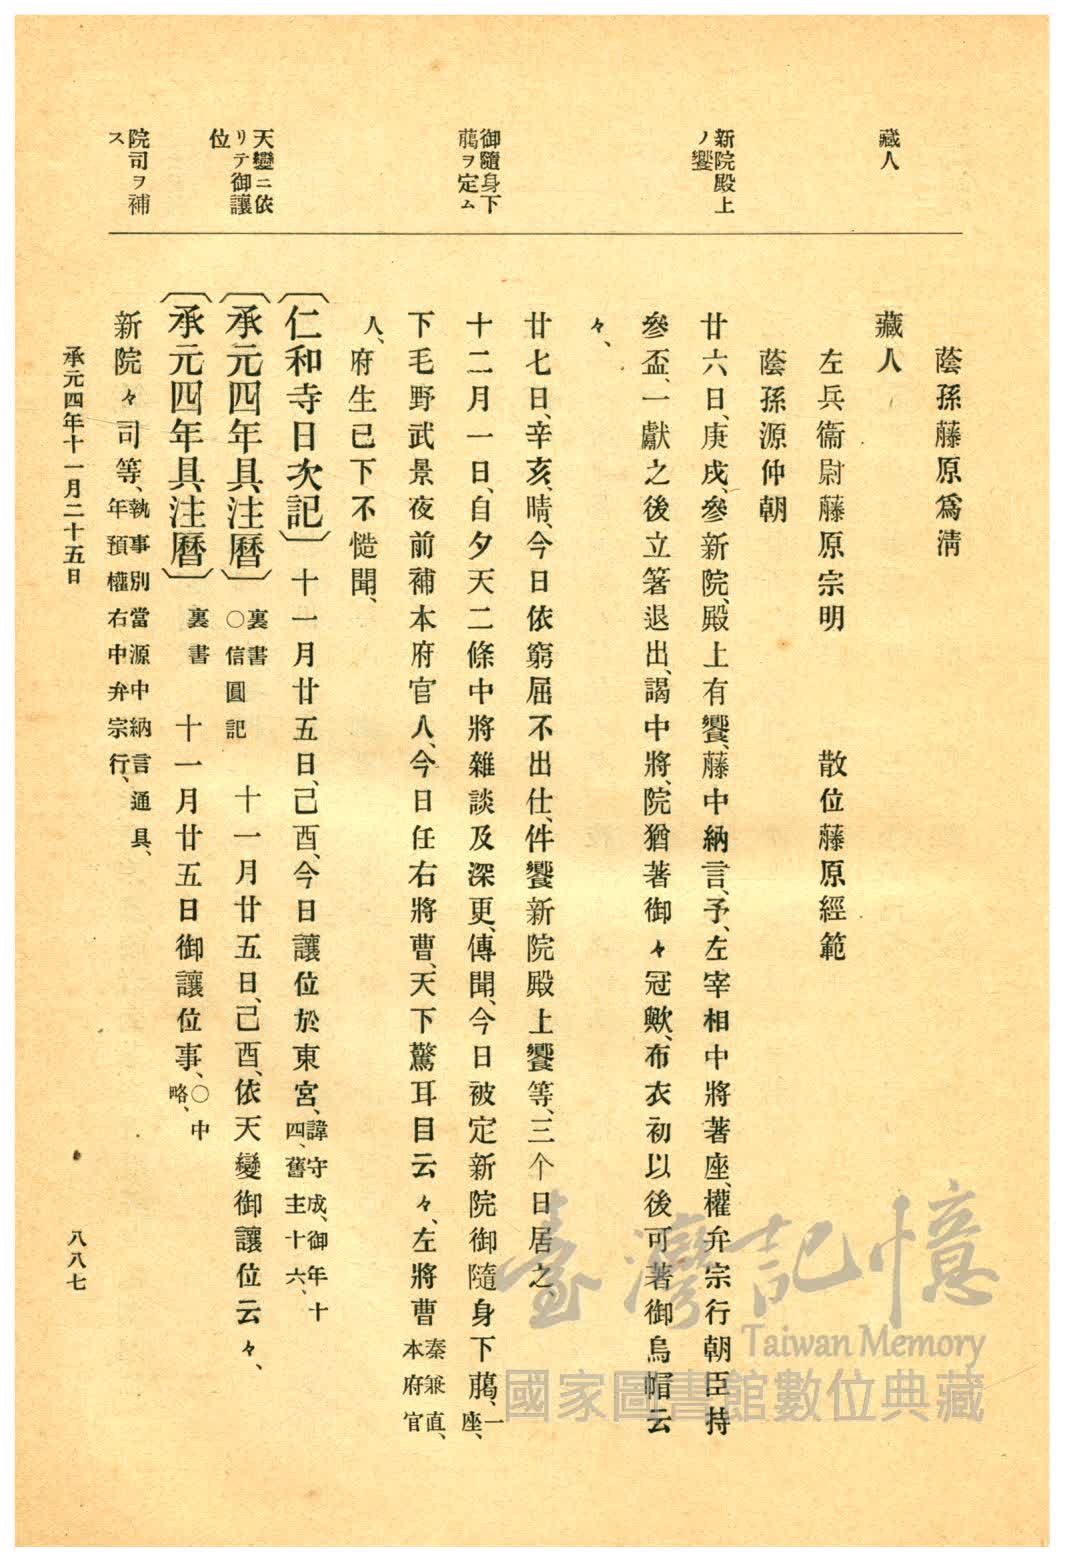 藏人
新院殿上
ノ饗
御隨身下
﨟ヲ定ム
天變ニ依
リテ御讓
位
院司ヲ補
ス
蔭孫藤原爲淸
藏人
左兵衞尉藤原宗明　散位藤原經範
蔭孫源仲朝
廿六日、庚戌、參新院、殿上有饗、藤中納言、予、左宰相中將著座、權弁宗行朝臣持
參盃、一獻之後立箸退出、謁中將、院猶著御々冠歟、布衣初以後可著御烏帽云
々、
廿七日、辛亥、晴、今日依窮屈不出仕、件饗新院殿上饗等、三个日居之、
十二月一日、自夕天二條中將雜談及深更、傳聞、今日被定新院御隨身下﨟、一座、
下毛野武景夜前補本府官人、今日任右將曹、天下驚耳目云々、左將曹秦兼直、本府官
人、府生已下不慥聞、
〔仁和寺日次記〕十一月廿五日、己酉、今日讓位於東宮、諱守成、御年十四、舊主十六、
〔承元四年具注曆〕裏書○信圓記　十一月廿五日、己酉、依天變御讓位云々、
〔承元四年具注曆〕裏書　十一月廿五日御讓位事、○中略、
新院々司等、執事別當源中納言通具、年預權右中弁宗行、
承元四年十一月二十五日
八八七
臺灣記憶
Taiwan Memory
國家圖書館數位典藏